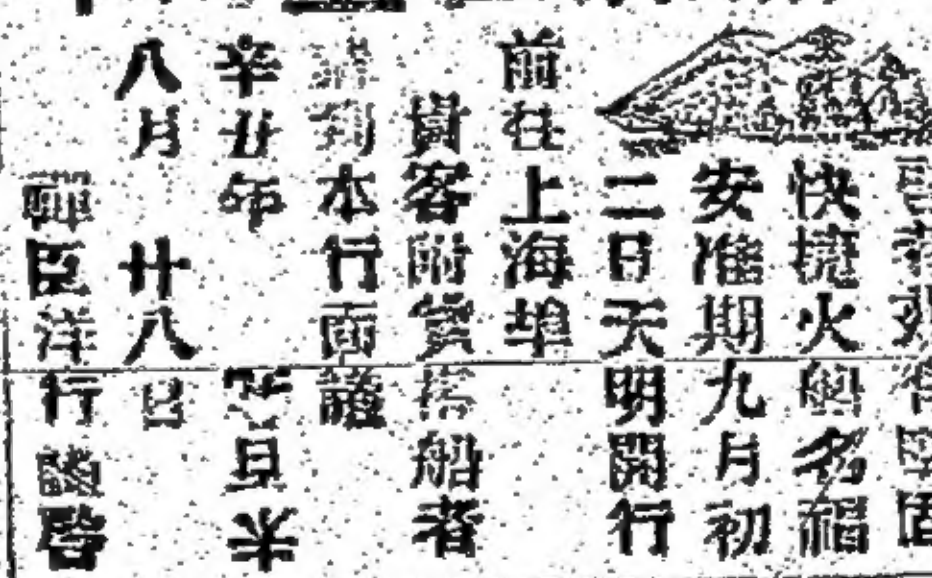 快捷火船名福
安准期九月初
二日天明開行
前往上海埠
貴客附貨搭船者
請到本行面議
辛丑年
八月 廿八日
禪臣洋行謹啓